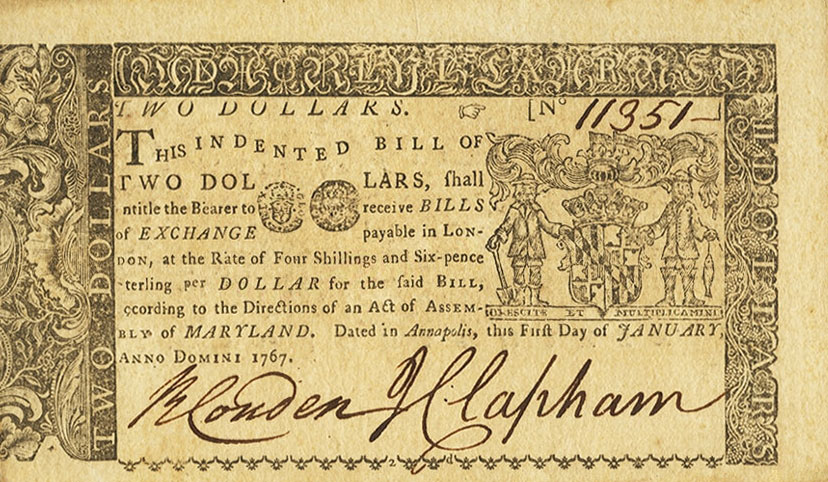 TWO DOLLARS
TWO DOLLARS. [Nº 11351
THIS INDENTED BILL OF
TWO DOLLARS, ſhall
ntitle the Bearer to receive BILLS
of EXCHANGE payable in LON-
DON, at the Rate of Four Shillings and Six-pence
terling per DOLLAR for the ſaid BILL,
ccording to the Directions of an Act of ASSEM-
BLY of MARYLAND. Dated in Annapolis, this Firſt Day of JANUARY,
ANNO DOMINI 1767.
CRESCITE ET MULTIPLICAMINI
R Couden J Clapham
2 d